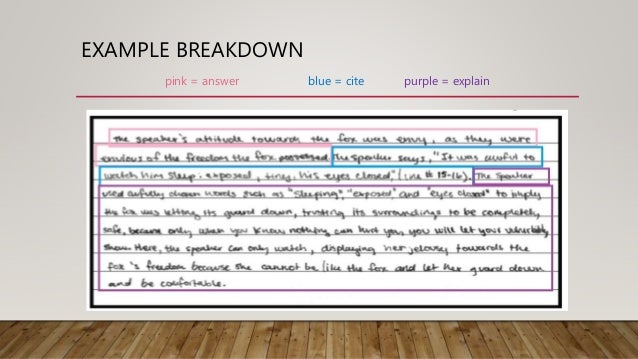 EXAMPLE BREAKDOWN
pink = answer blue = cite purple = explain
The speaker's attitude towards the fox was envy, as they were
envious of the freedom the fox possessed. The speaker says, "It was awful to
watch him sleep: exposed, tiny, his eyes closed," (line # 15-16). The speaker
used carefully chosen words such as "sleeping", "exposed" and "eyes closed" to imply
the fox was letting its guard down, trusting its surroundings to be completely
safe, because only when you know nothing can hurt you, you will let your
show. Here, the speaker can only watch, displaying her jelousy towards the
fox's freedom because she cannot be like the fox and let her guard down
and be comfortable.